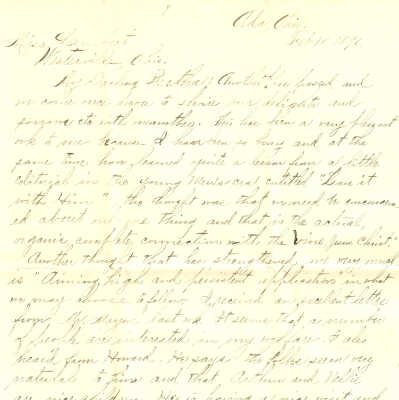 Ada, Ohio,
Feb 10, 1890
Miss
Westerville Ohio.
My Darling Brother; Another has passed and
we come once more to share our delights and
sorrows etc with one another. This has been a very pleasant
week to me because I have been so busy and at the
same time have learned quite a lesson from a little
editorial in the Young Mens era entitled "Leave it
with Him". The thought was that we need be concerned
ed about one thing and that is the actual,
organic, complete connection with the Vine Jesus Christ."
Another thought that has strengthened me very much
is "Aiming high and persistent application" in what
we may follow. I received an excellent letter
from last wk. It seems that a number
of people are interested in my welfare. I also
heard from Howard. He says the folks seem very
natural to him and that Arthur and Nellie
are nice children. He is having a nice visit and